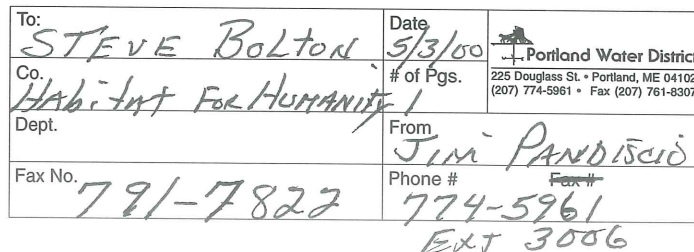 To: STEVE BOLTON
Date 5/3/00
Portland Water District
225 Douglass St. • Portland, ME 04102
(207) 774-5961 • Fax (207) 761-8307
Co. Habitat For Humanity
# of Pgs. 1
Dept.
From Jim PANDISCIO
Fax No. 791-7822
Phone # Fax#
774-5961
Ext 3006